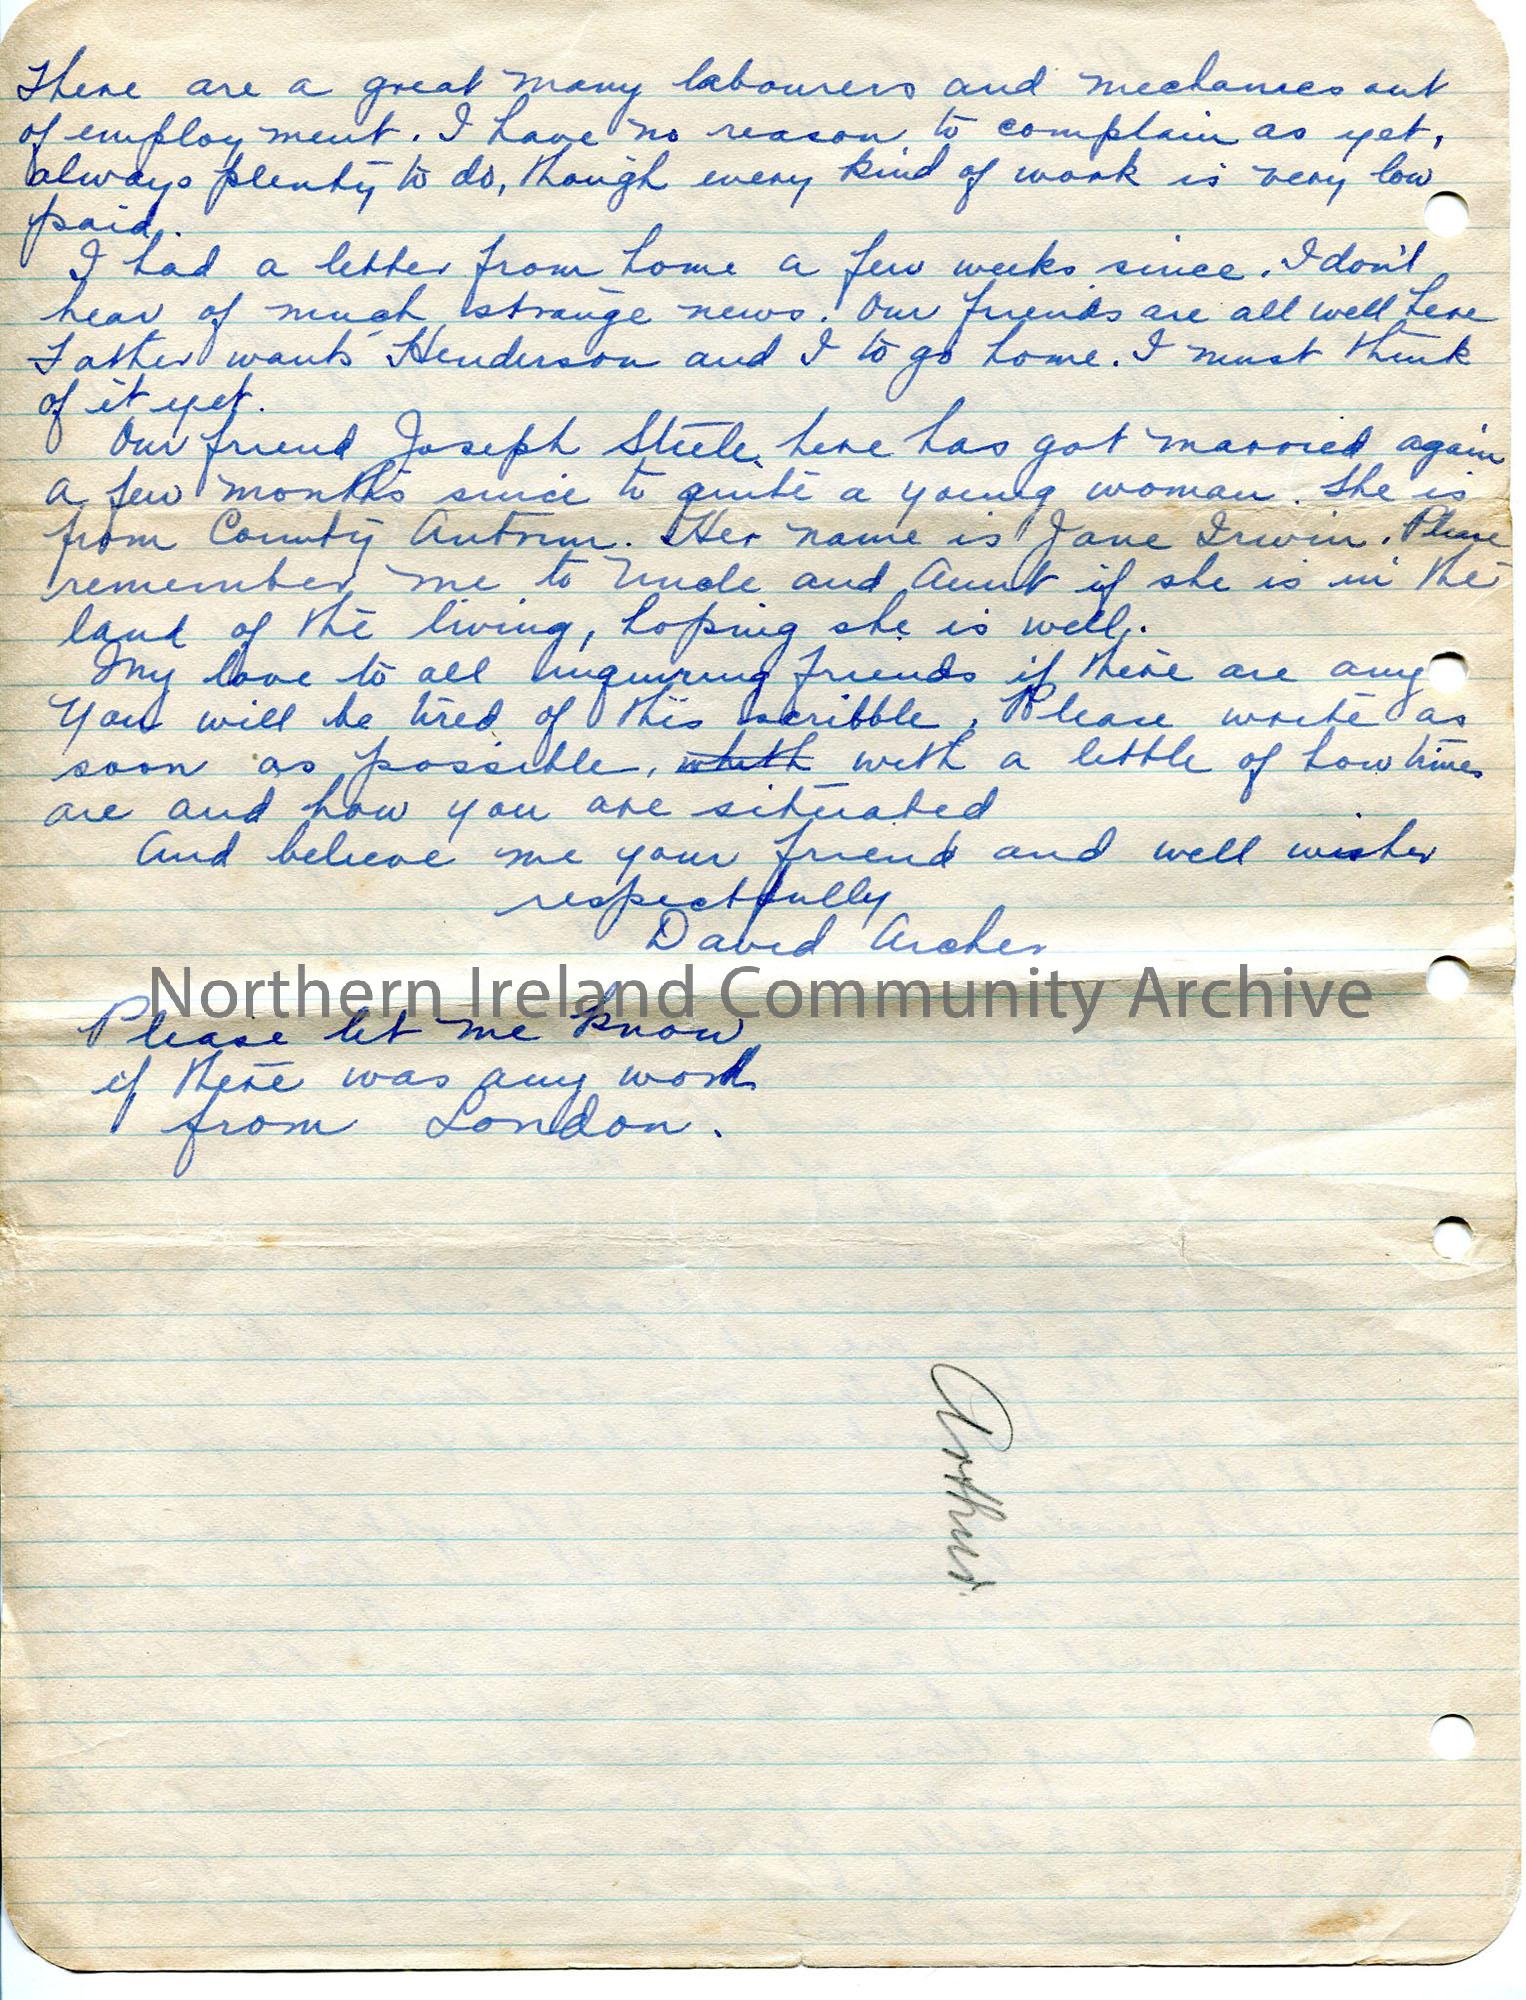 There are a great many labourers and mechanics out
of employment. I have no reason to complain as yet,
always plenty to do, though every kind of work is very low
paid.
I had a letter from home a few weeks since. I don't
hear of much strange news. Our friends are all well here
Father wants Henderson and I to go home. I must think
of it yet.
Our friend Joseph Steele here has got married again
a few months since to quite a young woman. She is
from County Antrim. Her name is Jane Irwin. Please
remember me to Uncle and Aunt if she is in the
land of the living, hoping she is well.
My love to all inquiring friends if there are any
You will be tired of this scribble. Please write as
soon as possible, with a little of how times
are and how you are situated
And believe me your friend and well wisher
respectfully
David Archer
Northern Ireland Community Archive
Please let me know
if there was any word
from London.
Arthur